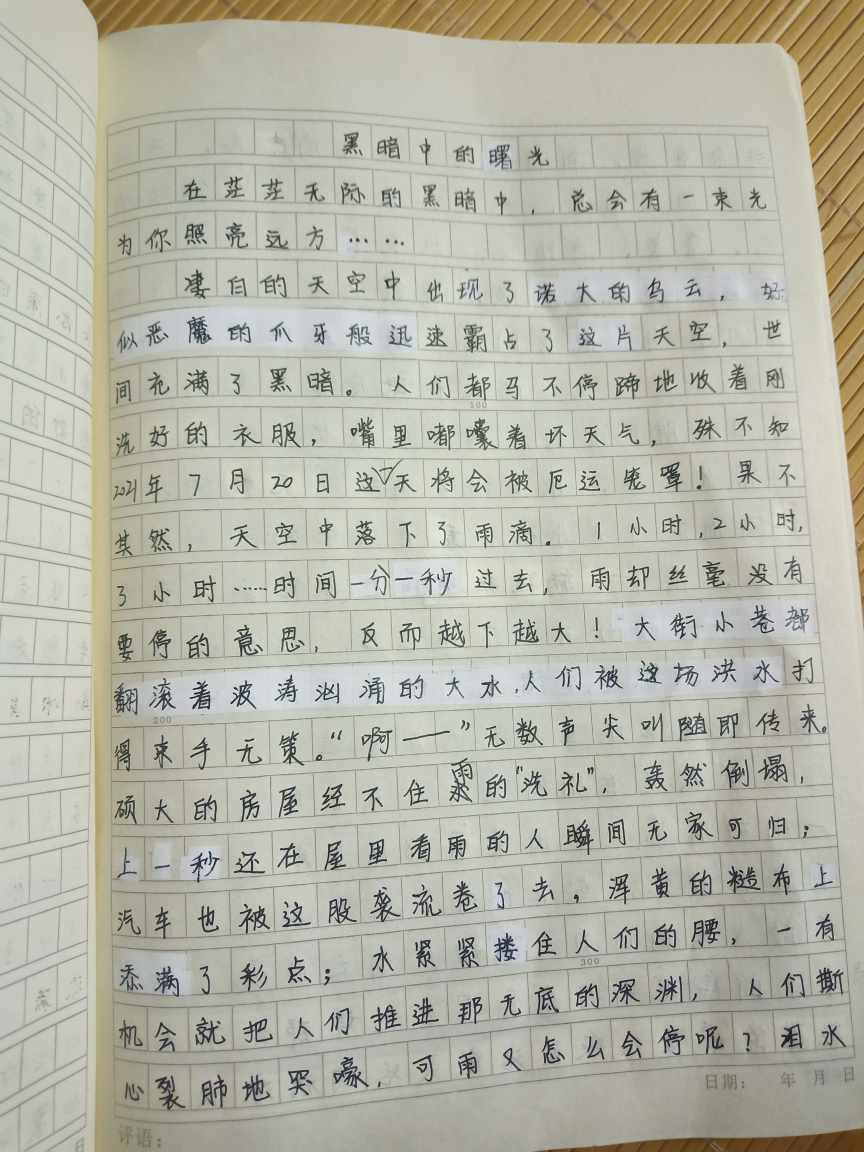 黑暗中的曙光
在茫茫无际的黑暗中，总会有一束光
为你照亮远方……
凄白的天空中出现了诺大的乌云，好
似恶魔的爪牙般迅速霸占了这片天空，世
间充满了黑暗。人们都马不停蹄地收着刚
洗好的衣服，嘴里嘟囔着坏天气，殊不知
2021年7月20日这天将会被厄运笼罩！果不
其然，天空中落下了雨滴。1小时，2小时，
3小时……时间一分一秒过去，雨却丝毫没有
要停的意思，反而越下越大！大街小巷都
翻滚着波涛汹涌的大水，人们被这场洪水打
得束手无策。“啊——”无数声尖叫随即传来。
硕大的房屋经不住雨的“洗礼”，轰然倒塌，
上一秒还在屋里看雨的人瞬间无家可归；
汽车也被这股袭流卷了去，浑黄的糙布上
添满了彩点；水紧紧搂住人们的腰，一有
机会就把人们推进那无底的深渊，人们撕
心裂肺地哭嚎，可雨又怎么会停呢？泪水
日期： 年 月 日
评语：
100
200
300